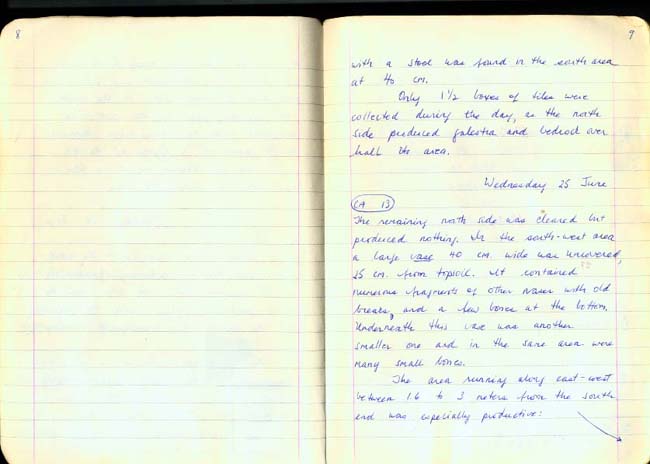 8
9
with a stool was found in the south area
at 40 cm.
Only 1 1/2 boxes of tiles were
collected during the day, as the north
side produced galestra and bedrock over
half its area.
Wednesday 25 June
CA 13
The remaining north side was cleared but
produced nothing. In the south-west area
a large vase 40 cm. wide was uncovered,
25 cm. from topsoil. It contained
numerous fragments of other vases with old
breaks, and a few bones at the bottom.
Underneath this vase was another
smaller one and in the same area were
many small bones.
The area running along east-west
between 1.6 to 3 meters from the south
end was especially productive: